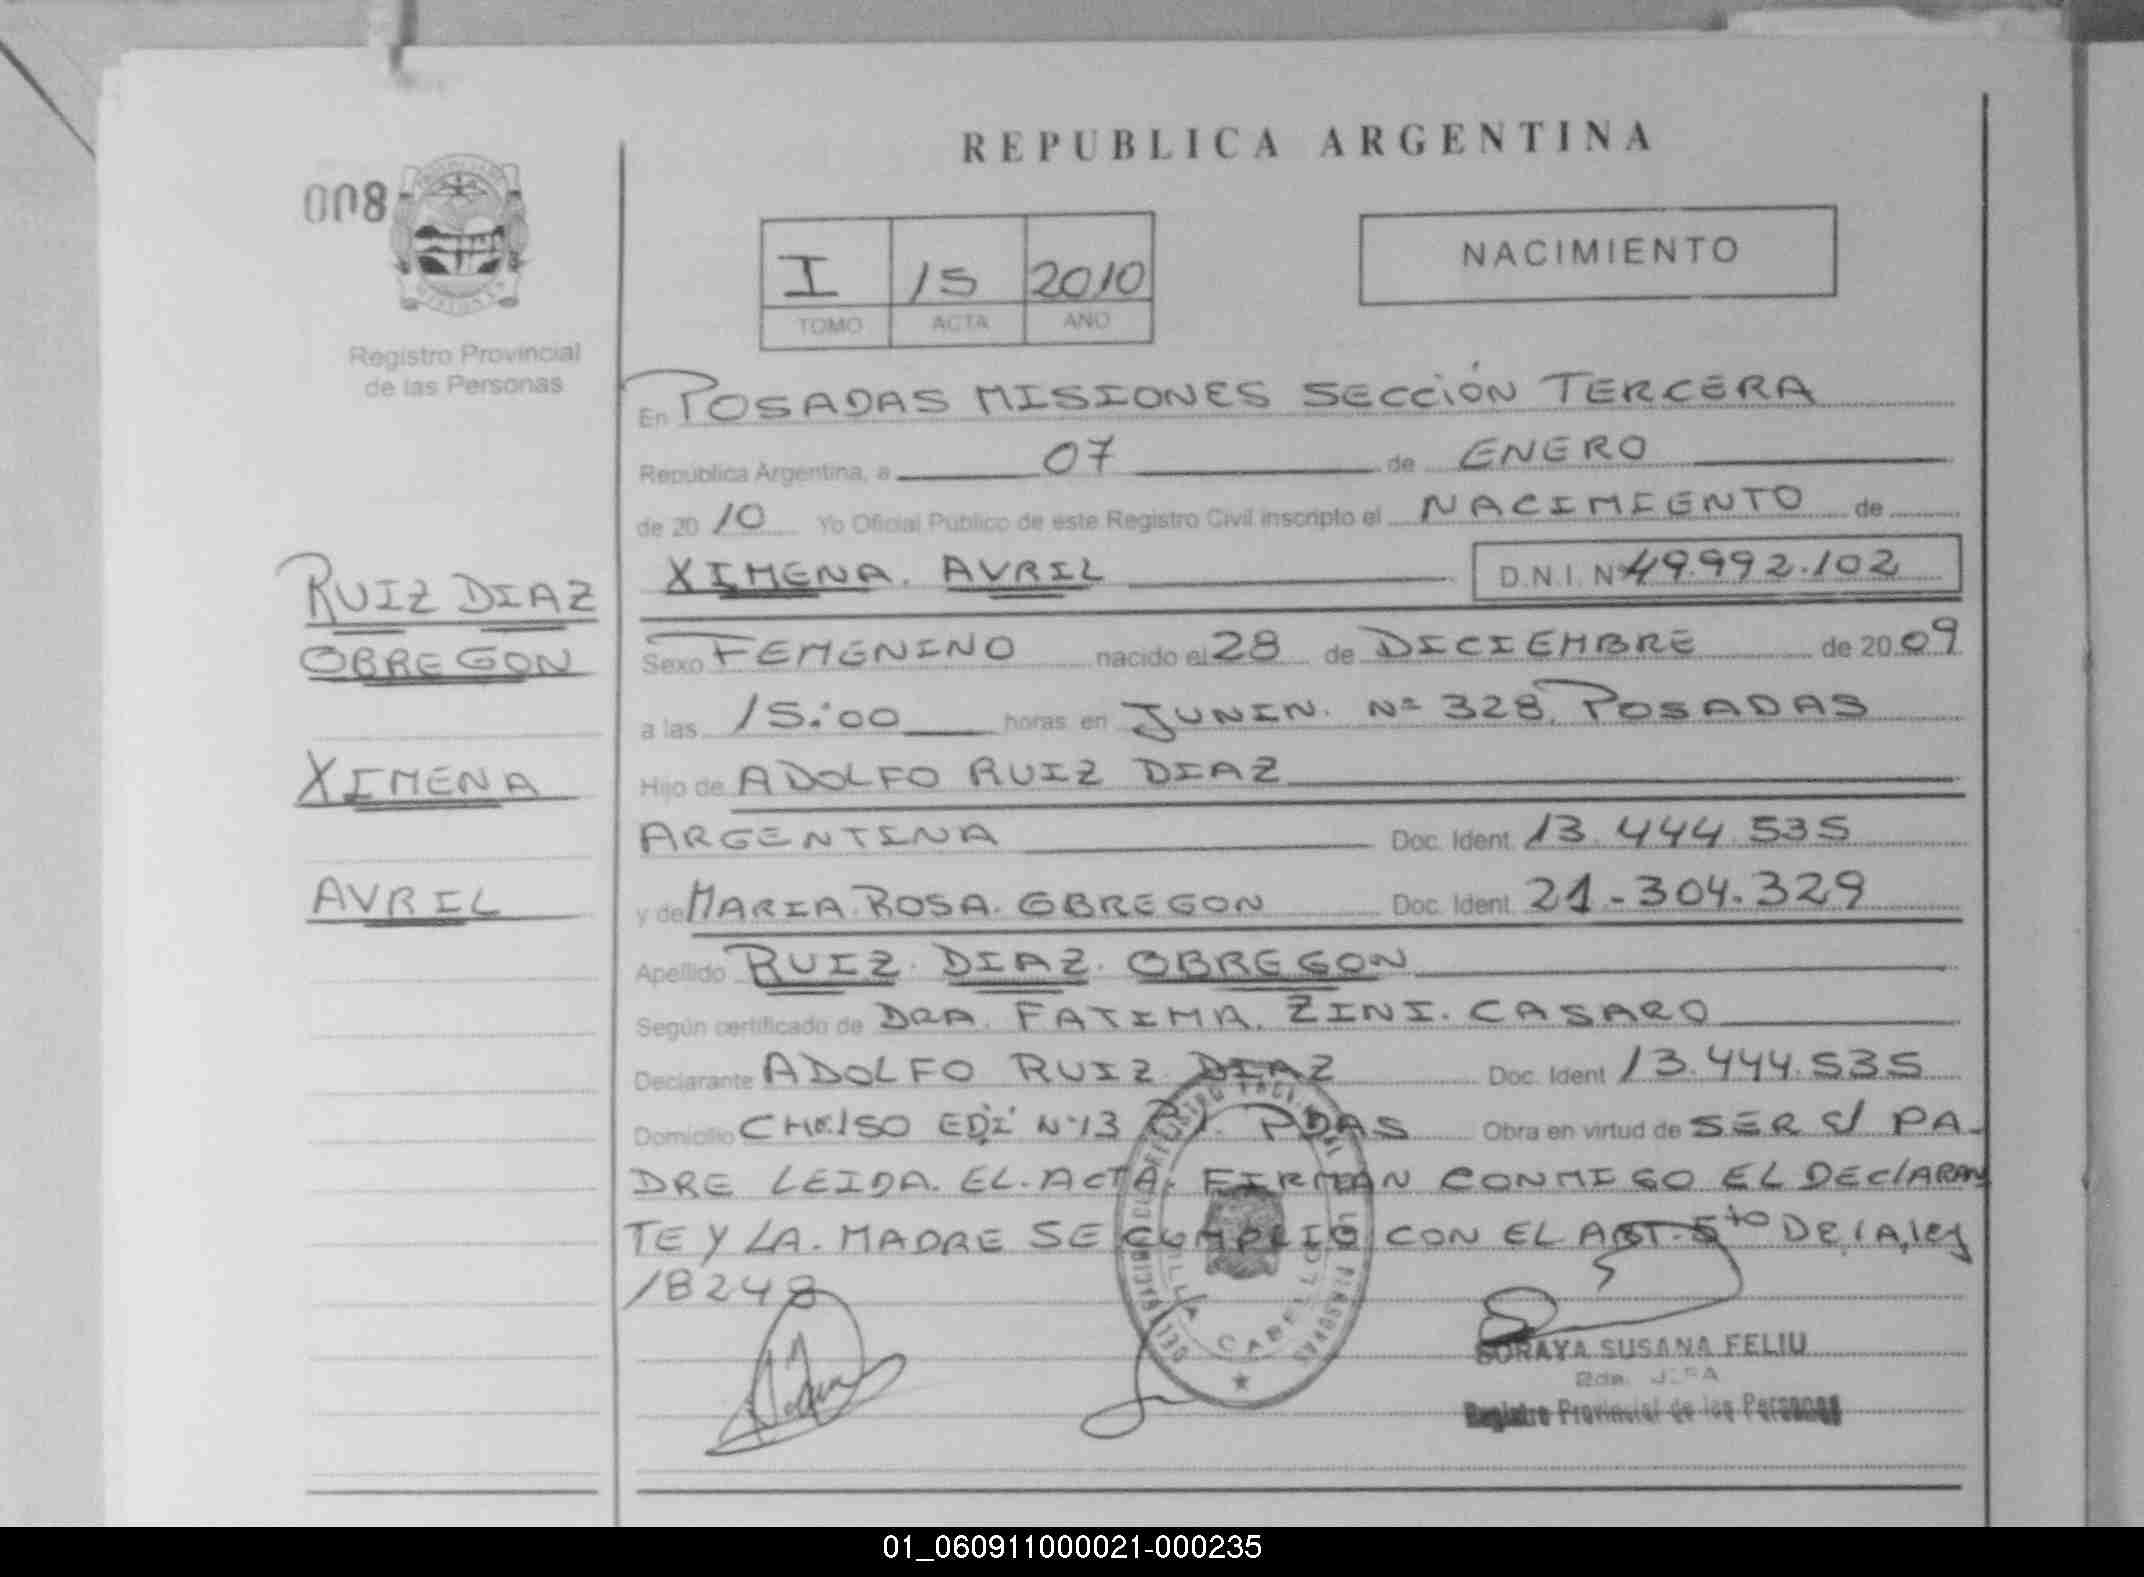 REPUBLICA ARGENTINA
008
NACIMIENTO
I 15 2010
TOMO ACTA AÑO
Registro Provincial
de las Personas
En POSADAS MISIONES SECCIÓN TERCERA
República Argentina, a 07 de ENERO
de 2010 Yo Oficial Público de este Registro Civil inscripto el NACIMIENTO de
XIMENA. AVRIL D.N.I. Nº 49.992.102
RUIZ DIAZ
OBREGON
XIMENA
AVRIL
Sexo FEMENINO nacido el 28 de DICIEMBRE de 2009
a las 15:00 horas en JUNIN. Nº 328. POSADAS
Hijo de ADOLFO RUIZ DIAZ
ARGENTINA Doc. Ident. 13.444.535
y de MARIA. ROSA. OBREGON Doc. Ident. 21-304.329
Apellido RUIZ. DIAZ. OBREGON
Según certificado de DRA. FATIMA. ZINI. CASARO
Declarante ADOLFO RUIZ DIAZ Doc. Ident 13.444.535
Domicilio CH.150 EDI Nº13 PDAS Obra en virtud de SER S/ PA-
DRE LEIDA. EL. ACTA. FIRMAN CONMIGO EL DECLARAN
TE Y LA. MADRE SE CUMPLIO CON EL ART. 5to DE LA ley
18248
VILLA CABELLO
SORAYA SUSANA FELIU
2da. JEFA
Registro Provincial de las Personas
01_060911000021-000235